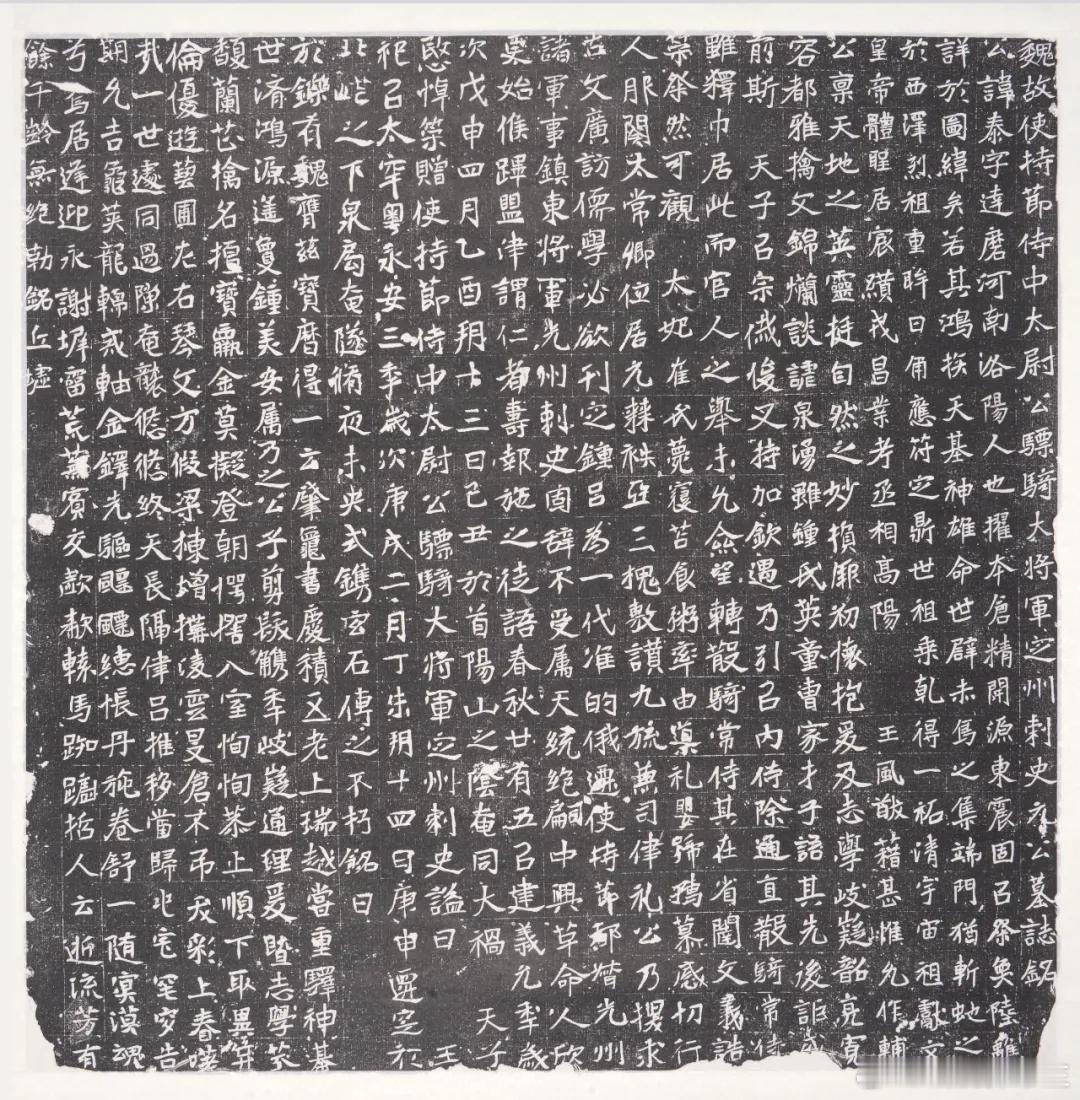 魏故使持節侍中太尉公驃騎大將軍定州刺史元公墓誌銘
公諱泰字達磨河南洛陽人也擢本倉精開源東震固已祭奐陸離
詳於圖緯矣若其鴻族天基神雄命世辟赤烏之集端門猶斬虵之
於西澤烈祖重眸日角應符定鼎世祖乘乾得一祏清宇宙祖獻文
皇帝體睲居宸纘戎昌業考丞相高陽王風猷藉甚惟允作輔
公稟天地之英靈挺自然之妙損厥初懷抱爰及志學岐嶷韶亮寬
容都雅摛文錦爛談謔泉湧雖鍾氏英童曹家才子語其先後詎
前斯天子以宗戚俊乂特加欽遇乃引以內侍除通直散騎常侍
雖釋巾居此而官人之舉未允僉望轉散騎常侍其在省闥文義誥
策粲然可觀太妃崔氏薨寢苫食粥率由禮嬰號孺慕感切行
人服闋太常卿位居九棘袟亞三槐敷讚九旒兼司律禮公乃搜求
古文廣訪儒學必欲刊定鍾呂為一代准的俄遷使持節都督光州
諸軍事鎮東將軍光州刺史固辭不受属天統絕嗣中興草命人欣
奚始候蹕盟津謂仁者壽報施之徒語春秋廿有五以建義元年歲
次戊申四月乙酉朔十三日己丑於首陽山之陰奄同大禍天子
慜悼策贈使持節侍中太尉公驃騎大將軍定州刺史謚曰王
祀以太牢粵永安三年歲次庚戌二月丁未朔十四日庚申遷窆於
北芒之下泉扃奄隧脩夜未央式鐫玄石傳之不朽銘曰
於鑠有魏膺茲寶曆得一云肇龜書慶積五老上瑞越嘗重驛神基
世濟鴻源遙敻鐘美安属乃之公子剪髮觹年岐嶷通理爰暨志學芬
馥蘭芷擒名擅寶飄金莫擬登朝愕愕入室恂恂恭上順下取異等
倫優遊藝圃左右琴文方假梁棟增搆凌雲旻倉不弔戔彩上春嗟
弎一世遽同過隙奄襲儋儋終天長隔律呂推移當歸北宅罜穸告
朔允吉龜筴龍輴戒軸金鐸先驅飄飄緦悵丹旐卷舒一随冥漠魂
兮焉居遵迎永謝墀霤荒蕪賓交歔欷轅馬踟躕哲人云逝流芳有
餘千齡無絕勒銘丘墟